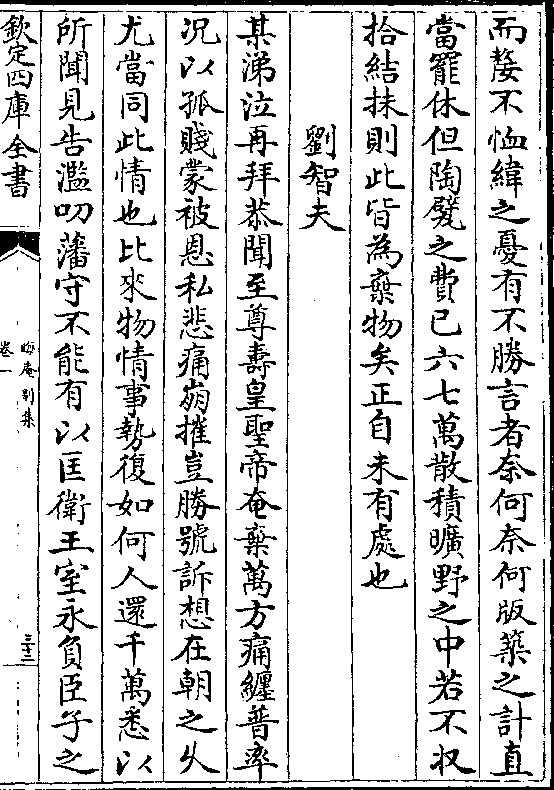 而嫠不恤緯之憂有不勝言者奈何奈何版築之計直
當罷休但陶甓之費已六七萬散積曠野之中若不収
拾結抹則此皆為棄物矣正自未有處也
劉智夫
某涕泣再拜恭聞至尊壽皇聖帝奄棄萬方痛纒普率
况以孤賤蒙被恩私悲痛崩摧豈勝號訴想在朝之乆
尤當同此情也比來物情事勢復如何人還千萬悉以
所聞見告濫叨藩守不能有以匡衛王室永負臣子之
欽定四庫全書
晦庵别集
卷一
三十二